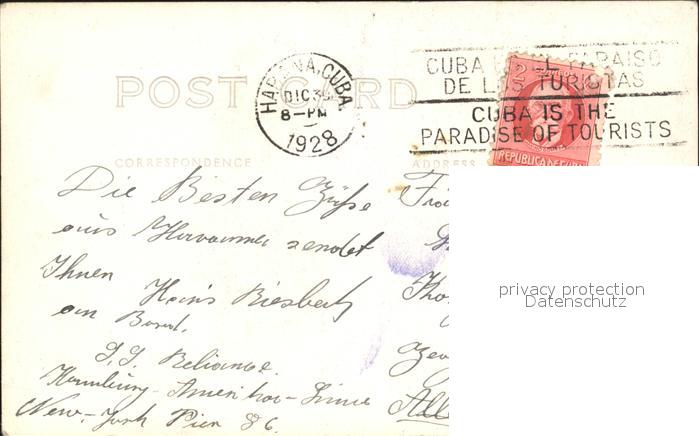 POST CARD
HABANA, CUBA.
DIC 3
8-PM
1928
CUBA E L PARAISO
DE LOS TURISTAS
CUBA IS THE
PARADISE OF TOURISTS
2
REPUBLICA DE CU
CORRESPONDENCE
ADDRESS
Die Besten Grüße
aus Havanna sendet
Ihnen Heins Biesbach
an Bord.
S.S. Reliance.
Hamburg-Amerika-Linie
New-York Pier 86.
privacy protection
Datenschutz